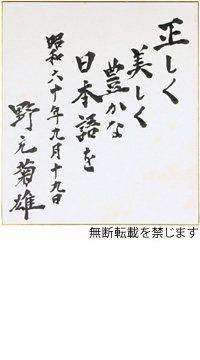 正しく
美しく
豊かな
日本語を
昭和六十年九月十九日
野元菊雄
無断転載を禁じます